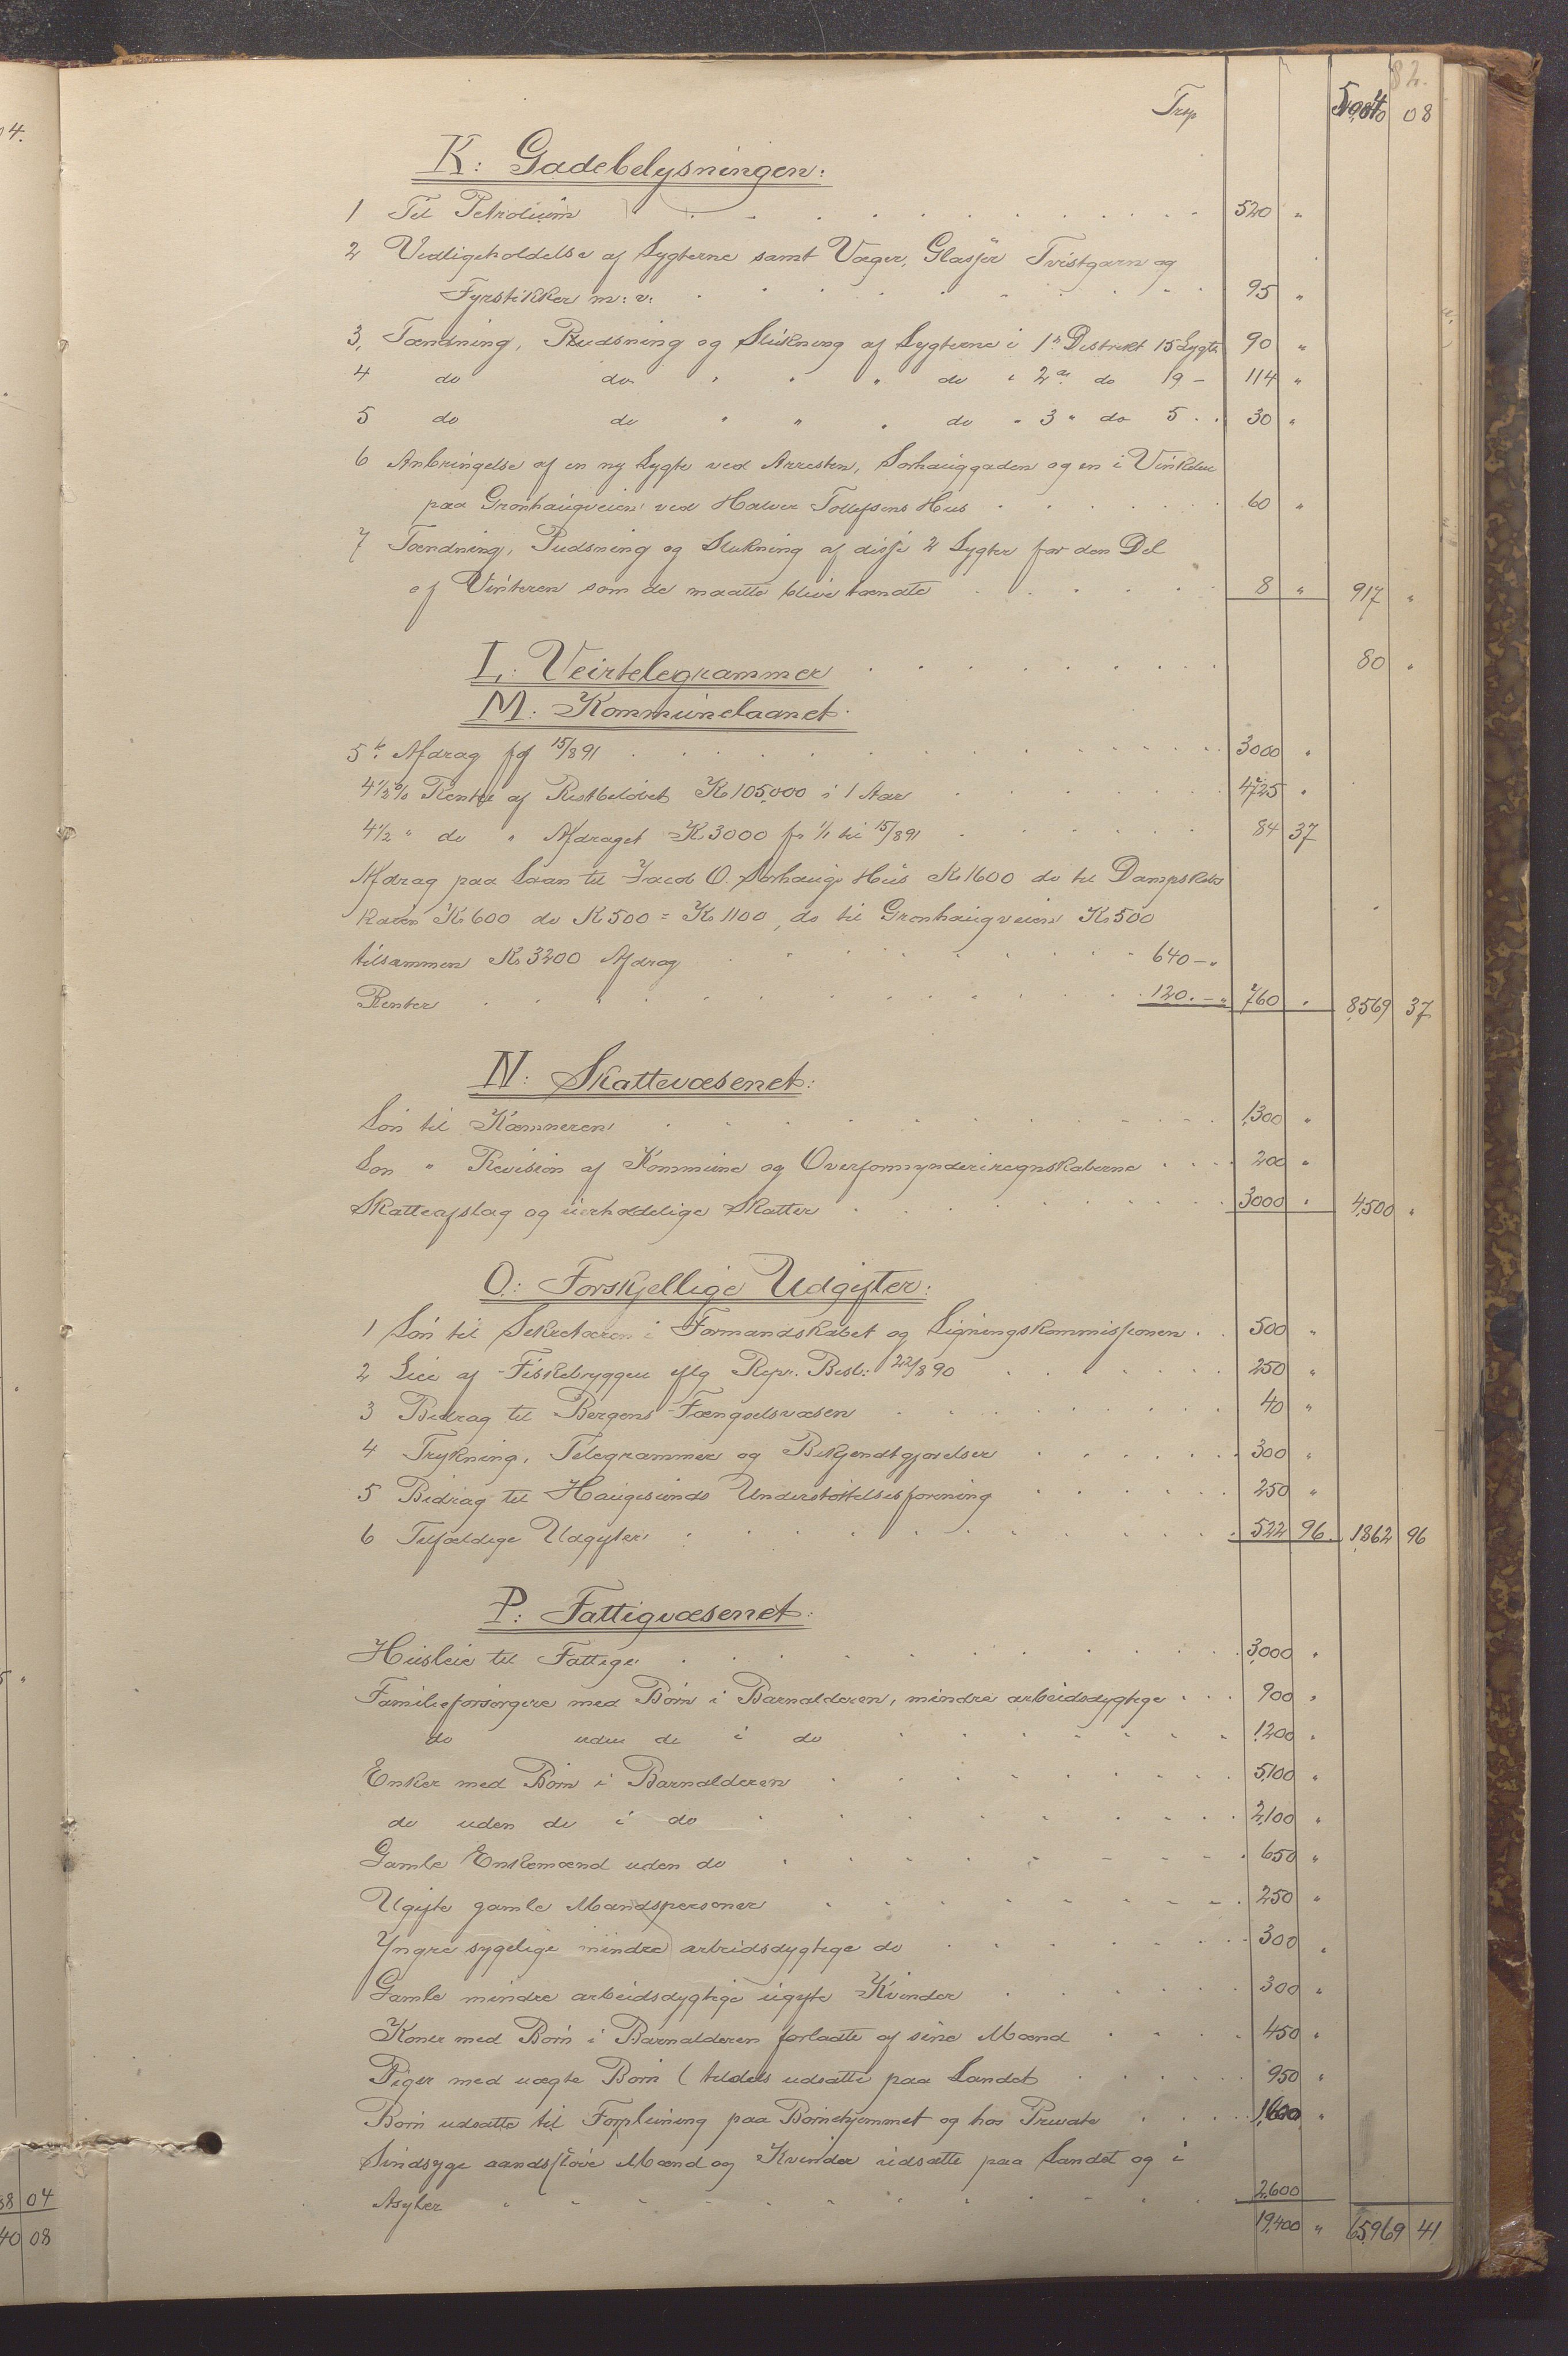 82.
Trsp 08
K: Gadebelysningen:
1 Til Petroleum 520 "
2 Vedligeholdelse af Lygterne samt Væger, Glasser Tvistgarn og
Fyrstikker m: v: 95 "
3, Tændning, Pudsning og Slukning af Lygterne i 1ste Distrikt 15 Lygter 90 "
4 do do " " " do i 2det do 19 - 114 "
5 do do " " " do " 3 " do 5 30 "
6 Anbringelse af en ny Lygte ved Arresten, Sørhauggaden og en i Vinkelen
paa Grønhaugveien ved Halvor Tollefsens Hus 60 "
7 Tændning, Pudsning og Slukning af disse 2 Lygter for den Del
af Vinteren som de maatte blive tændte 8 " 917 "
L: Veirtelegrammer 80 "
M: Kommunelaanet:
5te Afdrag pf 15/8 91 3000 "
4 1/2 % Rente af Restbeløbet Kr 105,000 i 1 Aar 4725 "
4 1/2 " do " Afdraget Kr 3000 fr 1/1 til 15/8 91 84 37
Afdrag paa Laan til Jacob O. Sørhaugs Hus Kr 1600 do til Dampskibs
kaien Kr 600 do Kr 500 = Kr 1100, do til Grønhaugveien Kr 500
tilsammen Kr 3200 Afdrag 640 - "
Renter 120. - " 760 " 8,569 37
N: Skattevæsenet:
Løn til Kæmneren 1,300 "
Løn " Revision af Kommune og Overformynderiregnskaberne 200 "
Skatteafslag og uerholdelige Skatter 3000 " 4,500 "
O: Forskjellige Udgifter:
1 Løn til Sekretæren i Formandskabet og Ligningskommissionen 500 "
2 Leie af Fiskebryggen iflg Repr. Besl: 22/8 90 250 "
3 Bidrag til Bergens Fængselsvæsen 40 "
4 Trykning, Telegrammer og Bekjendtgjørelser 300 "
5 Bidrag til Haugesunds Understøttelsesforening 250 "
6 Tilfældige Udgifter 522 96 1,862 96
P: Fattigvæsenet:
Husleie til Fattige 3,000 "
Familieforsørgere med Børn i Barnalderen, mindre arbeidsdygtige 900 "
do uden do i do 1,200 "
Enker med Børn i Barnalderen 5,100 "
do uden do i do 2,100 "
Gamle Enkemænd uden do 650 "
Ugifte gamle Mandspersoner 250 "
Yngre sygelige mindre arbeidsdygtige do 300 "
Gamle mindre arbeidsdygtige ugifte Kvinder 300 "
Koner med Børn i Barnalderen forladte af sine Mænd 450 "
Piger med uægte Børn ( tildels udsatte paa Landet 950 "
Børn udsatte til Forpleining paa Børnehjemmet og hos Private 1,600 "
Sindsyge aandssløve Mænd og Kvinder udsatte paa Landet og i
Asyler 2,600
19,400 " 65,969 41
04.
5 "
38 04
40 08